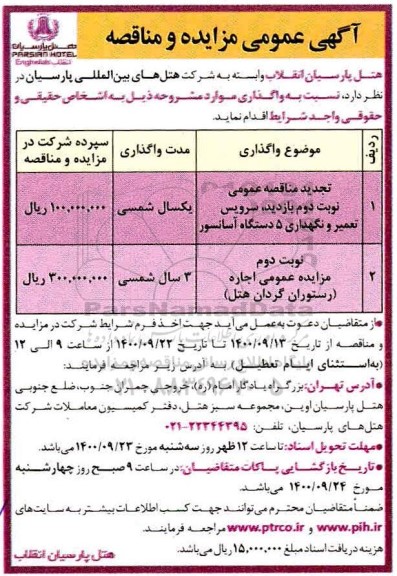 آگهی عمومی مزایده و مناقصه
هتل پارسیان
PARSIAN HOTEL
Enghelab انقلاب
هتل پارسیان انقلاب وابسته به شرکت هتل‌های بین‌المللی پارسیان در
نظر دارد، نسبت به واگذاری موارد مشروحه ذیل به اشخاص حقیقی و
حقوقی واجد شرایط اقدام نماید.
ردیف موضوع واگذاری مدت واگذاری سپرده شرکت در مزایده و مناقصه
۱ تجدید مناقصه عمومی نوبت دوم بازدید، سرویس تعمیر و نگهداری ۵ دستگاه آسانسور یکسال شمسی ۱۰۰,۰۰۰,۰۰۰ ریال
۲ نوبت دوم مزایده عمومی اجاره (رستوران گردان هتل) ۳ سال شمسی ۳۰۰,۰۰۰,۰۰۰ ریال
•از متقاضیان دعوت به عمل می‌آید جهت اخذ فرم شرایط شرکت در مزایده
و مناقصه از تاریخ ۱۴۰۰/۰۹/۱۳ تا تاریخ ۱۴۰۰/۰۹/۲۲ از ساعت ۹ الی ۱۲
(به‌استثنای ایام تعطیل) به آدرس زیر مراجعه فرمایند:
•آدرس تهران: بزرگراه یادگار امام (ره)، خروجی چمران جنوب، ضلع جنوبی
هتل پارسیان اوین، مجموعه سبز هتل، دفتر کمیسیون معاملات شرکت
هتل‌های پارسیان، تلفن: ۰۲۱-۲۲۳۴۴۳۹۵
•مهلت تحویل اسناد: تا ساعت ۱۲ ظهر روز سه‌شنبه مورخ ۱۴۰۰/۰۹/۲۳ می‌باشد.
•تاریخ بازگشایی پاکات متقاضیان: در ساعت ۹ صبح روز چهارشنبه
مورخ ۱۴۰۰/۰۹/۲۴ می‌باشد.
ضمناً متقاضیان محترم می‌توانند جهت کسب اطلاعات بیشتر به سایت‌های
www.pih.ir و www.ptrco.ir مراجعه فرمایند.
هزینه دریافت اسناد مبلغ ۱۵,۰۰۰,۰۰۰ ریال می‌باشد.
هتل پارسیان انقلاب
ParsNamadData